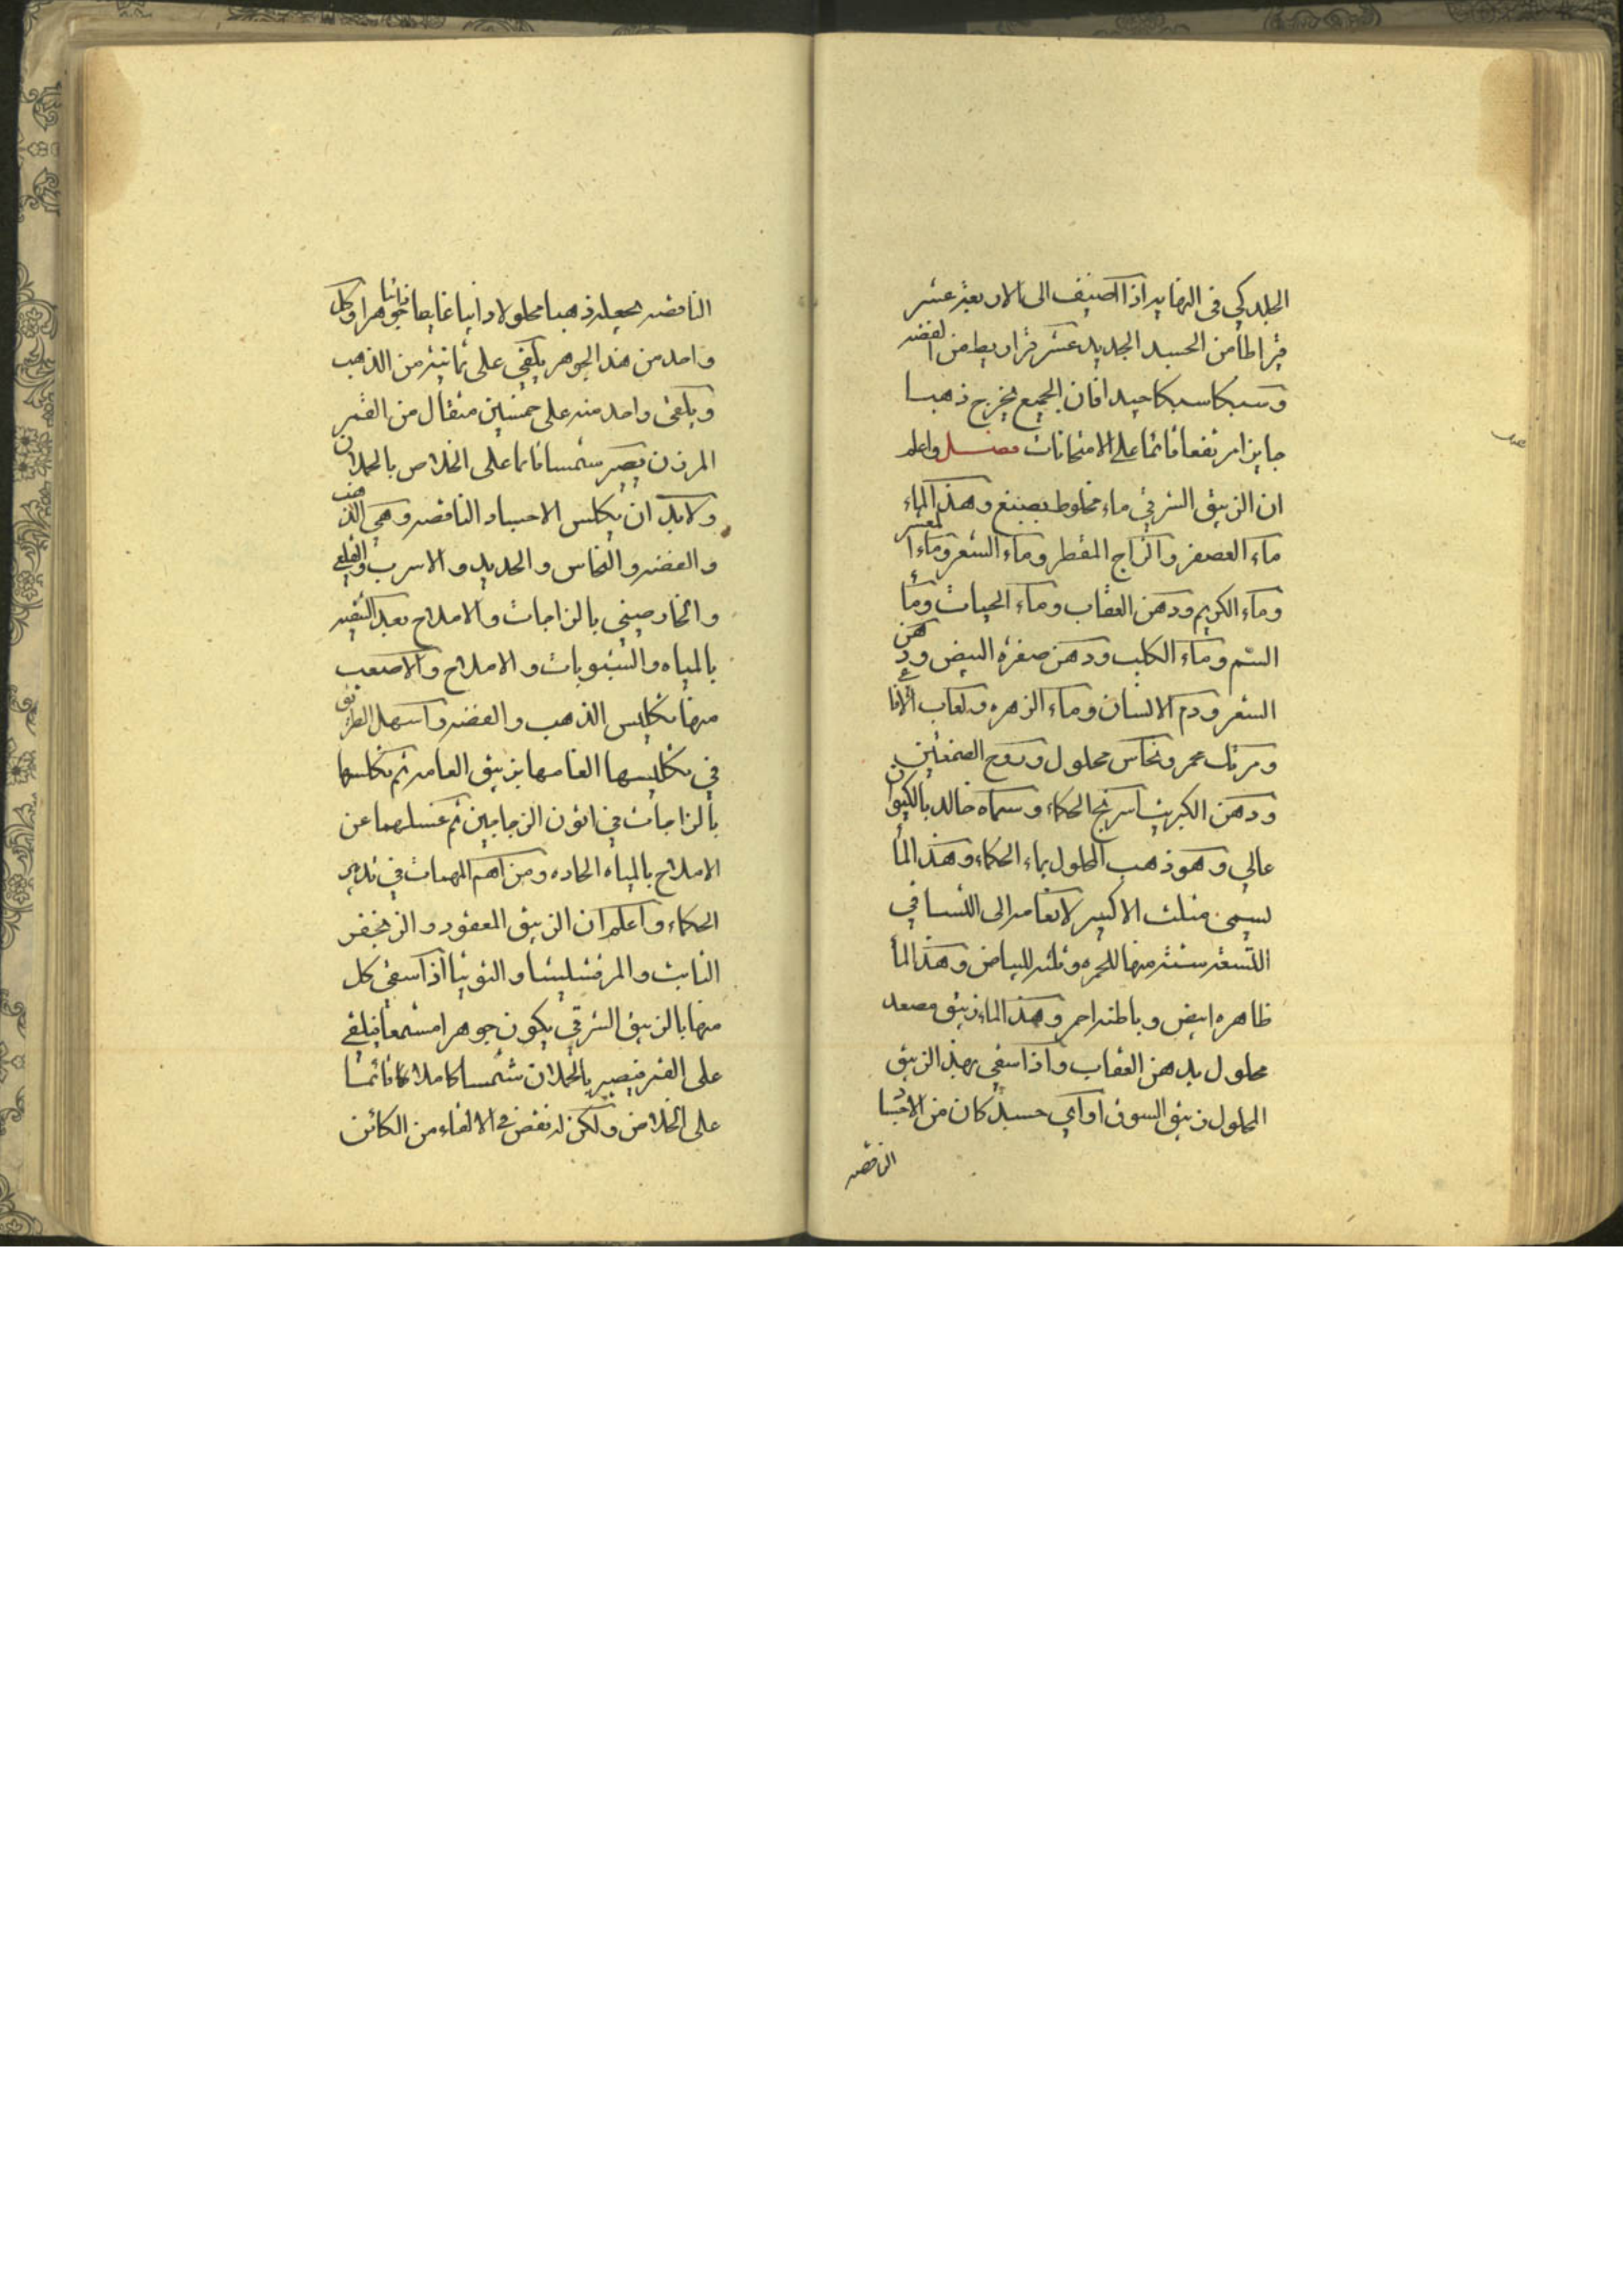 الجلدكي في النهايه اذا اضيف الى الاربعة عشر
قيراطا من الجسد الجديد عشر قراريط من الفضه
وسبكا سبكا جيدا فان الجميع يخرج ذهبا
جايزا مرتفعا قائما على الامتحانات فصل واعلم
ان الزيبق الشرقي ماء مخلوط بصبغ وهذا الماء
ماء العصفر والزاج المقطر وماء الشعر وماء المعشر
وماء الكريم ودهن العقاب وماء الحيات وماء
السم وماء الكلب ودهن صفرة البيض ودهن
الشعر ودم الانسان وماء الزهره ولعاب الافاعي
ومرتك محمر ونحاس محلول وروح الصمغين
ودهن الكبريت اسرنج الحكماء وسماه خالد بالكيوان
عالي وهو ذهب المحلول بماء الحكماء وهذا الماء
يسمى مثلث الاكسير لانقسامه الى
التسعة ستة منها للحمره وثلثه للبياض وهذا الماء
ظاهره ابيض وباطنه احمر وهذا الماء زيبق مصعد
محلول بدهن العقاب واذا سقي بهذ الزيبق
المحلول زيبق السوق او اي جسد كان من الاجساد
الناقصه
الناقصه يجعله ذهبا محلولا ذايبا غايصا ثابتا جوهرا وكل
واحد من هذ الجوهر يلقي على ثمانية من الذهب
ويلقى واحد منه على خمسين مثقال من القمر
المرزن يصير شمسا قائما على الخلاص بالحملان
ولابد ان يكلس الاجساد الناقصه وهي الذهب
والفضه والنحاس والحديد والاسرب والقلعي
والخارصيني بالزاجات والاملاح بعد التنقيه
بالمياه والشبوبات والاملاح والاصعب
منها تكليس الذهب والفضه واسهل الطرق
في تكليسها الغامها بزيبق العامه ثم تكلسها
بالزاجات في اتون الزجاجين ثم غسلهما عن
الاملاح بالمياه الحاده ومن اهم المهمات في تدبير
الحكماء واعلم ان الزيبق المعقود والزنجفر
الثابت والمرقشيشا والتوتيا اذا سقي كل
منها بالزيبق الشرقي يكون جوهرا مشمعا فيلقى
على القمر فيصير بالحملان شمسا كاملا قائما
على الخلاص ولكن له نقص في الالقاء من الكائن